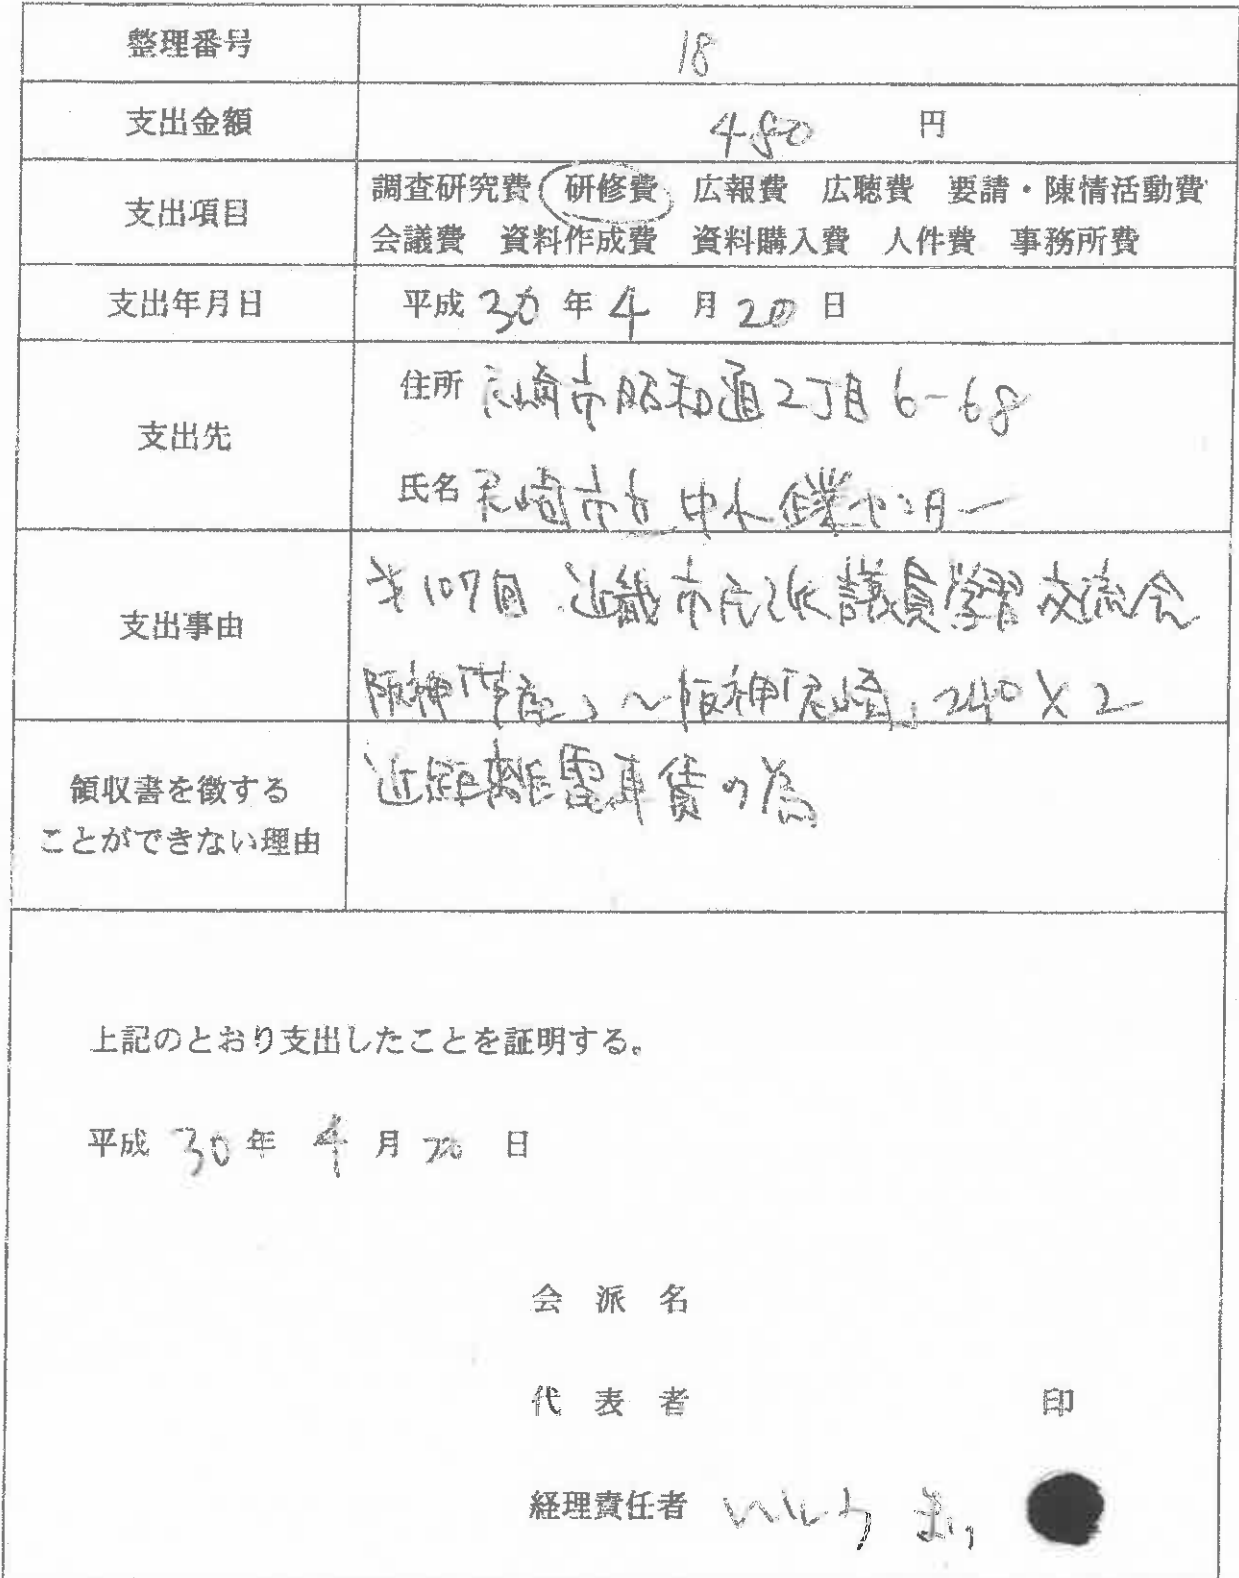 整理番号 18
支出金額 480 円
支出項目 調査研究費 研修費 広報費 広聴費 要請・陳情活動費
会議費 資料作成費 資料購入費 人件費 事務所費
支出年月日 平成 30 年 4 月 20 日
支出先
住所 尼崎市昭和通2丁目6-68
氏名 尼崎市立中小企業センター
支出事由
才107回 近畿市民派議員学習交流会
阪神「芦屋」〜阪神「尼崎」240×2
領収書を徴する
ことができない理由
近距離電車賃の為
上記のとおり支出したことを証明する。
平成 30 年 4 月 20 日
会派名
代表者 印
経理責任者